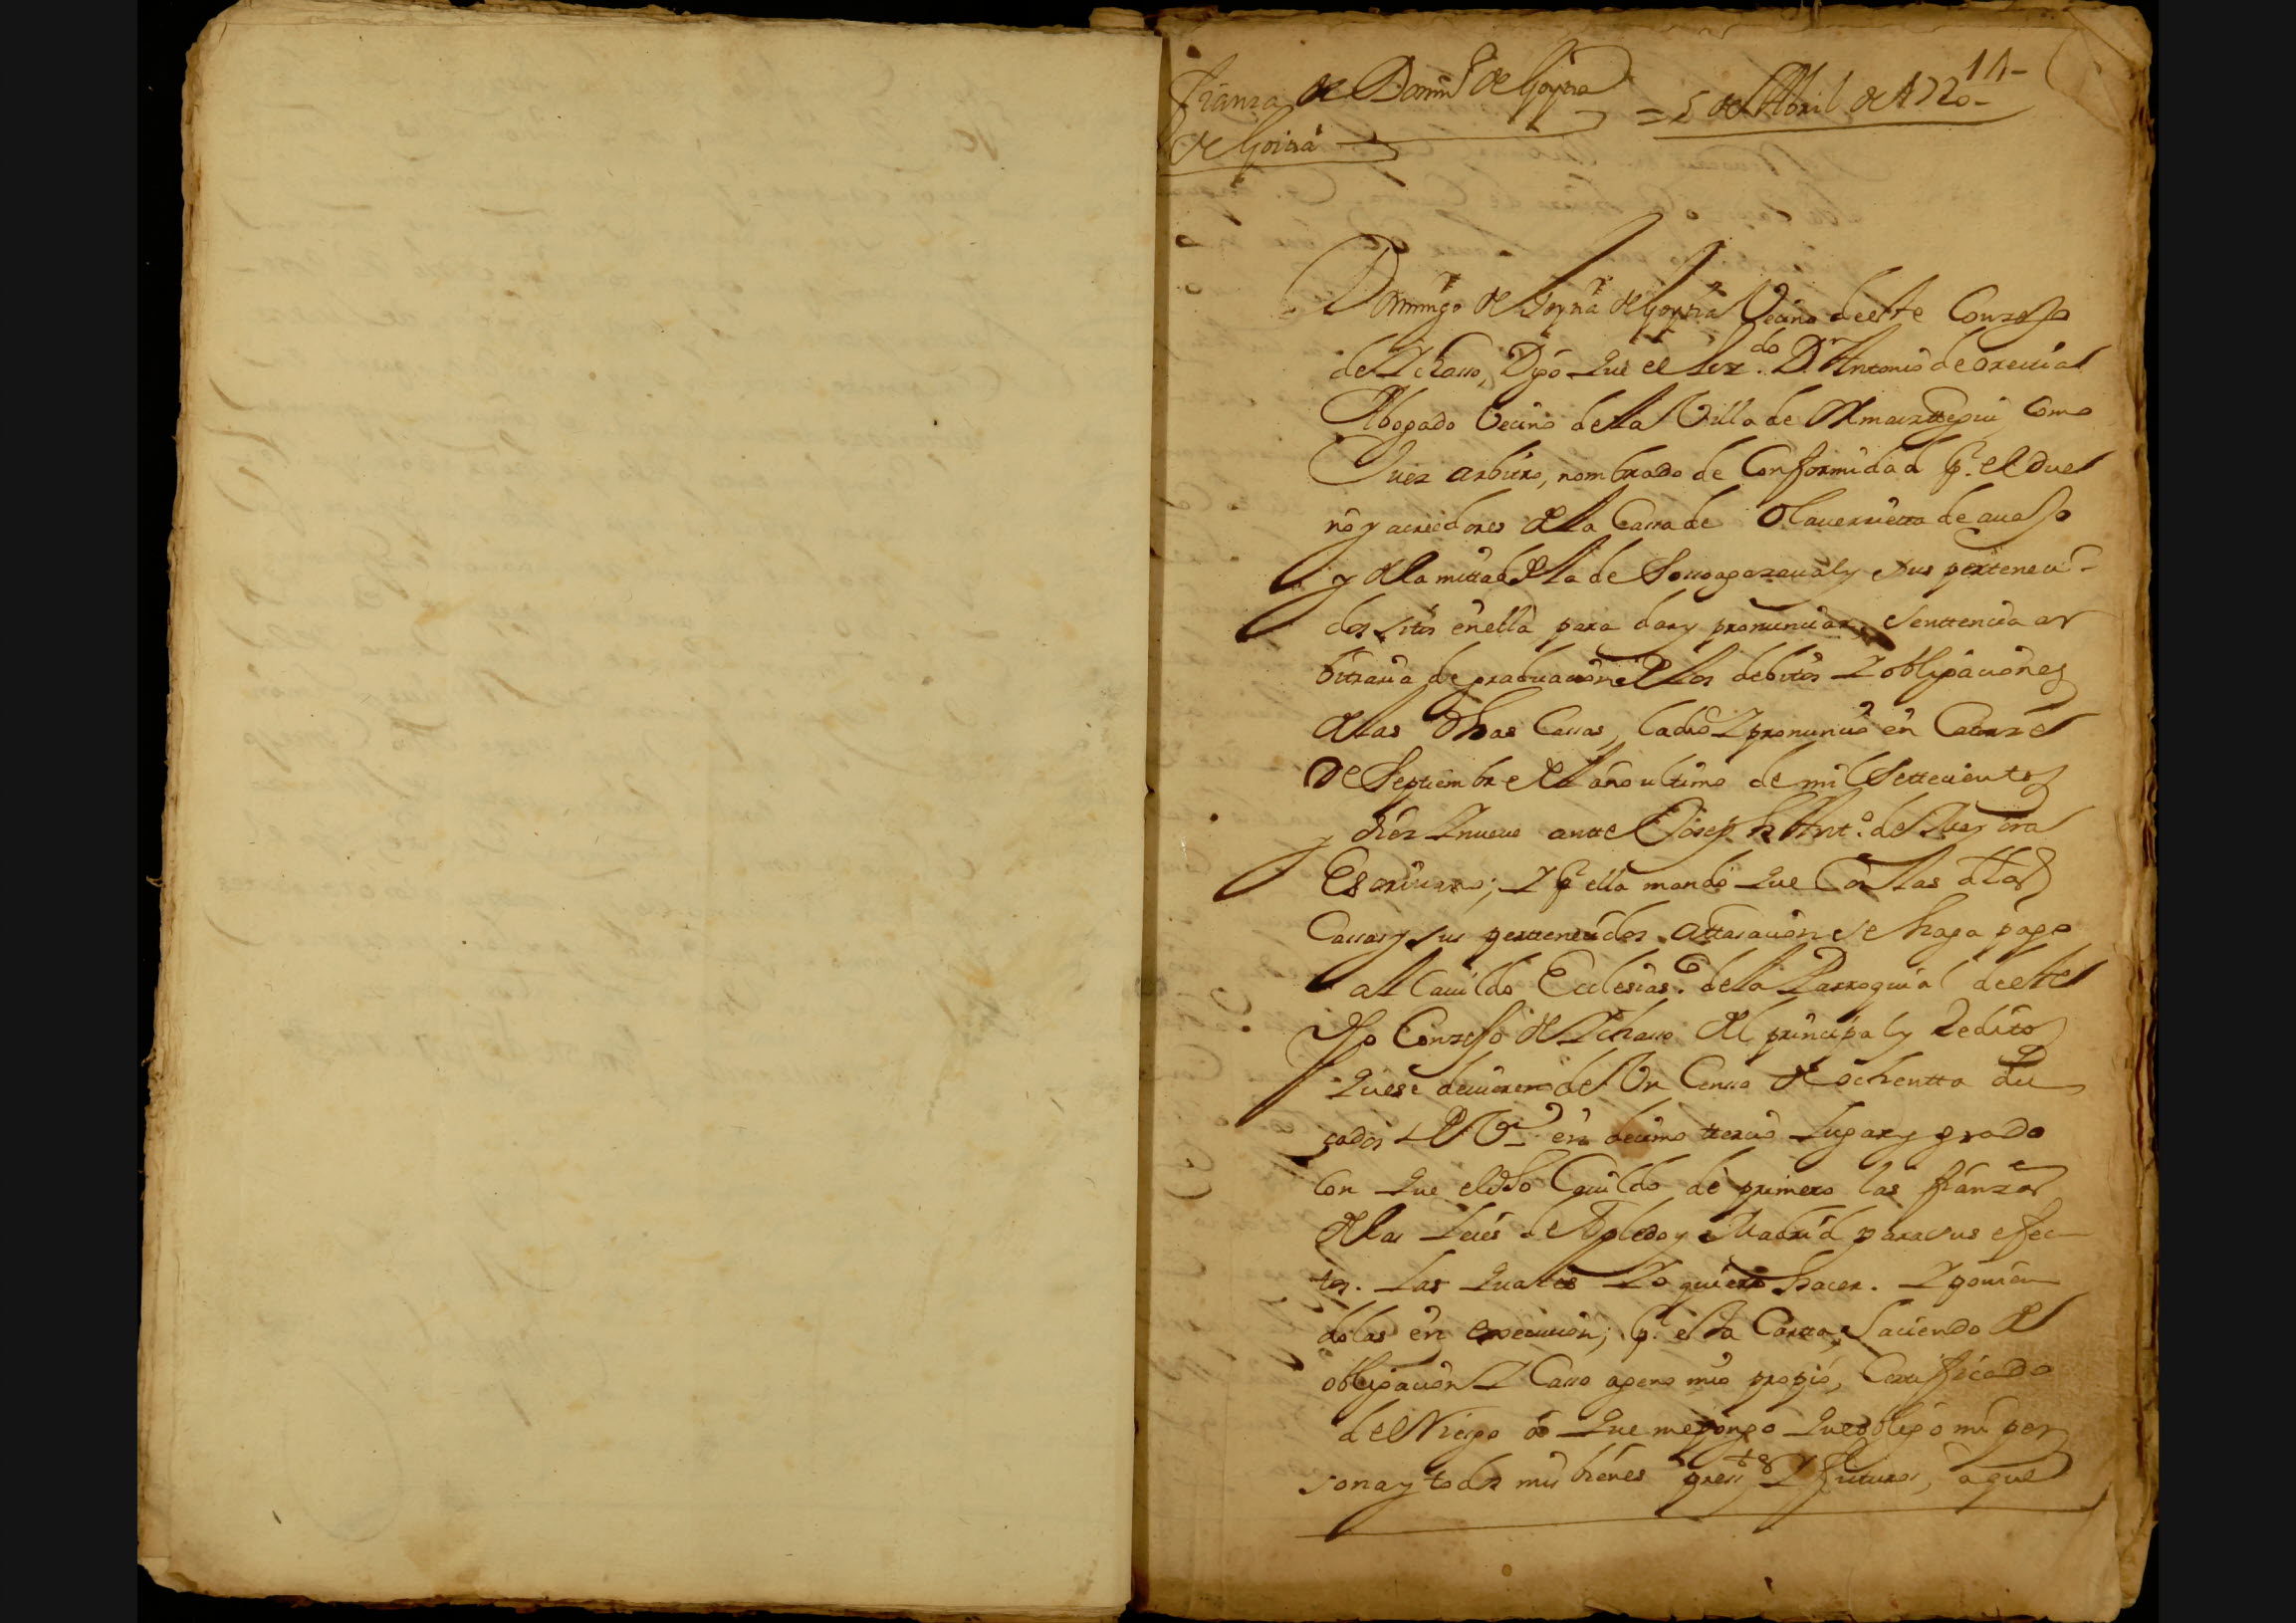 11-
Fianza de Domingo de Goyria = 5 de Abril de 1720-
de Goiria
Domingo de Goyria de Goyria Vecino deeste Conzejo
de Ichasso, Digo que el Liz.do D.n Antonio de orecia
Abogado Vecino de la Villa de Ormaizttegui como
Juez arbitro, nombrado de Conformidad p.r el Due
no y acreedores de la Cassa de Olauerrietta de auajo
y de la mittad de la de y sus perteneci-
dos sitos en ella para dar y pronunciar senttencia ar
bitraria de graduacion de los debitos Y obligaciones
de las dhas Cassas, la dio Y pronuncio en Catorze
de Septiembre del año ultimo de mil Settecientos
y diez Y nueve antte Joseph Ant.o de
Escriuano; Y p.r ella mando que Con las dhas
Cassas y sus perttenecidos a ttasacion se haga pago
al Cauildo Ecclesias.co de la Parroquia deeste
dho Conzejo de Ichasso del principal y Reditos
que se deuieren de Un Censo de ochentta du
cados de V.on en decimo tterzio Lugar y grado
con que el dho Cauildo dè primero las fianzas
de las Leies de Toledo y Madrid para sus efec-
tos. Las quales Yo quiero hacer. Y ponien
dolas en execucion; p.r esta Cartta, haciendo de
obligacion Y Casso ageno mio propio, Certificado
del Riesgo a que me pongo que obligo mi per
sona y todos mis bienes pres.tes Y futuros, a que